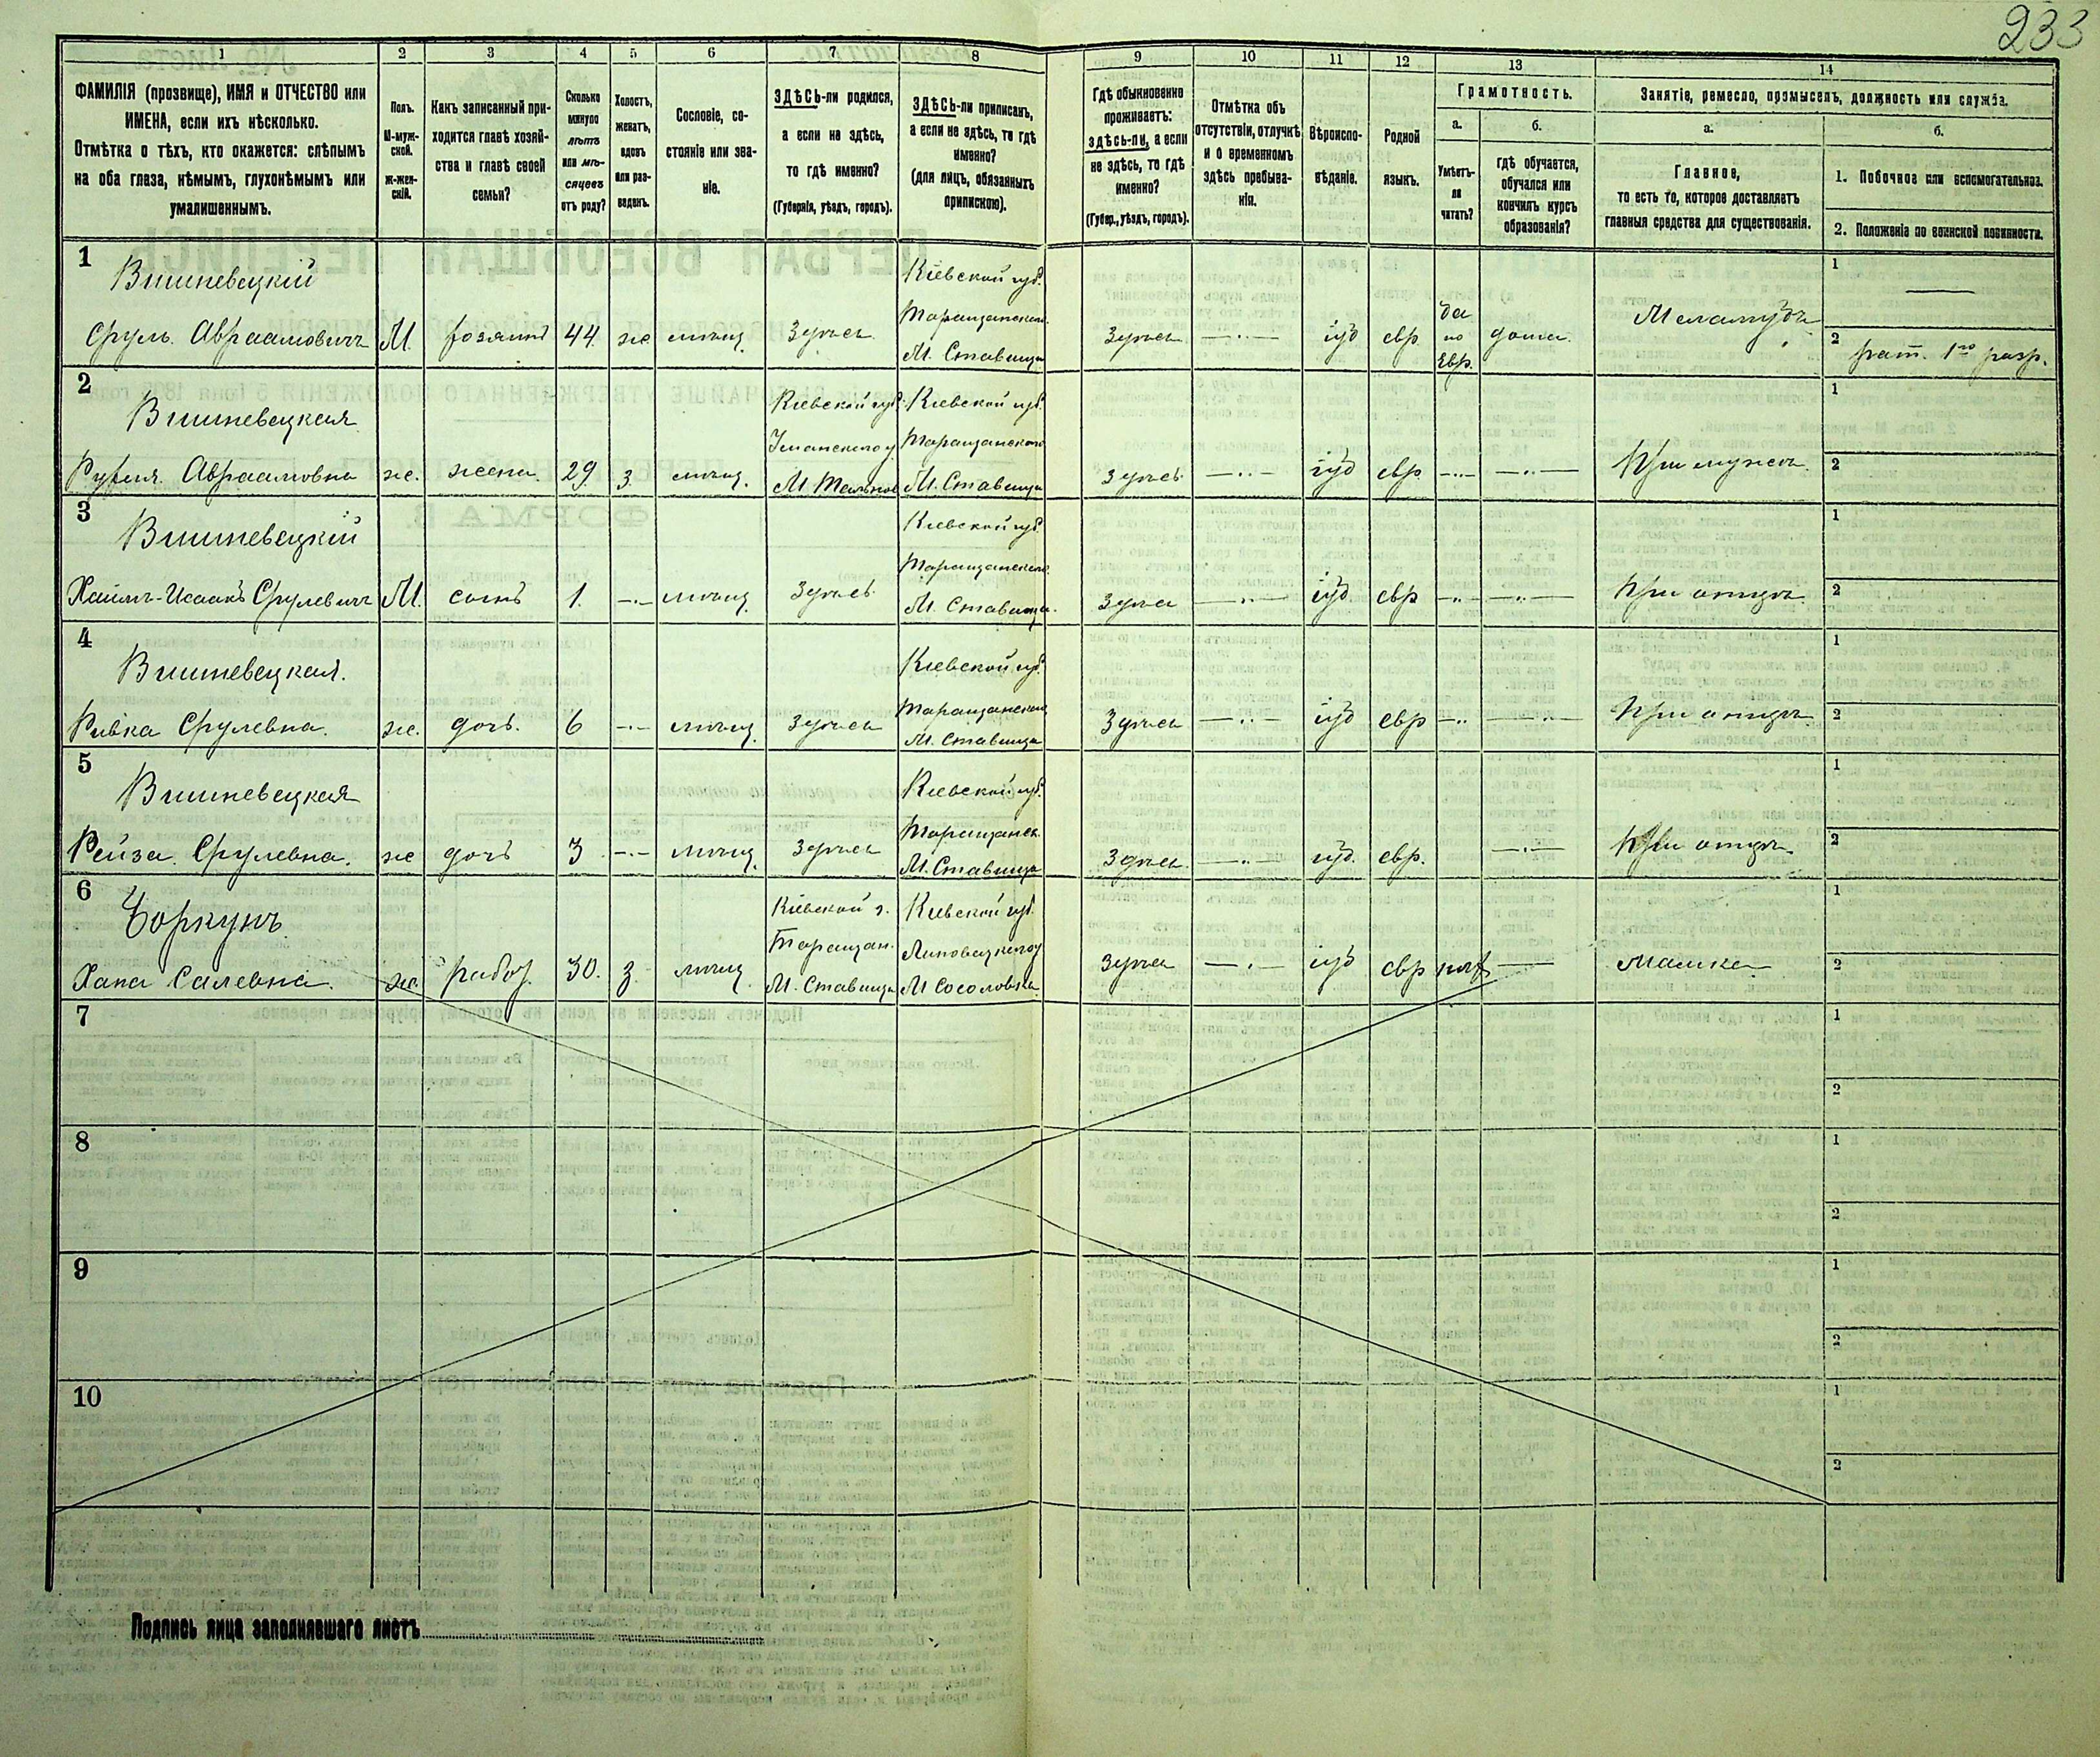 233
1 2 3 4 5 6 7 8 9 10 11 12 13 14
ФАМИЛІЯ (прозвище), ИМЯ и ОТЧЕСТВО или
ИМЕНА, если ихъ нѣсколько.
Отмѣтка о тѣхъ, кто окажется: слѣпымъ
на оба глаза, нѣмымъ, глухонѣмымъ или
умалишеннымъ.
Полъ.
М-муж-
ской.
ж-жен-
скій.
Какъ записанный при-
ходится главѣ хозяй-
ства и главѣ своей
семьи?
Сколько
минуло
лѣтъ
или мѣ-
сяцевъ
отъ роду?
Холостъ,
женатъ,
вдовъ
или раз-
веденъ.
Сословіе, со-
стояніе или зва-
ніе.
ЗДѢСЬ-ли родился,
а если не здѣсь,
то гдѣ именно?
(Губернія, уѣздъ, городъ).
ЗДѢСЬ-ли приписанъ,
а если не здѣсь, то гдѣ
именно?
(для лицъ, обязанныхъ
припискою).
Гдѣ обыкновенно
проживаетъ:
здѣсь-ли, а если
не здѣсь, то гдѣ
именно?
(Губер., уѣздъ, городъ).
Отмѣтка объ
отсутствіи, отлучкѣ
и о временномъ
здѣсь пребыва-
ніи.
Вѣроиспо-
вѣданіе.
Родной
языкъ.
Грамотность.
а.
Умѣетъ-
ли
читать?
б.
гдѣ обучается,
обучался или
кончилъ курсъ
образованія?
Занятіе, ремесло, промыселъ, должность или служба.
а.
Главное,
то есть то, которое доставляетъ
главныя средства для существованія.
б.
1. Побочное или вспомогательное.
2. Положеніе по воинской повинности.
1
Вишневецкій
Сруль Авраамовичъ М. хозяинъ 44 же мѣщ. Здѣсь
Кіевской губ.
Таращанскаго
М. Ставища
Здѣсь —..— іуд евр
да
по
Евр.
дома.
Меламудъ
1 —
2 рат. 1го разр.
2
Вишневецкая
Рухля Авраамовна же. жена. 29 з мѣщ.
Кіевской губ.
Уманскаго у.
М. Тальное
Кіевской губ.
Таращанскаго
М. Ставища
Здѣсь —..— іуд евр —..— —..— При мужѣ
1
2
3
Вишневецкій
Хаимъ-Исаакъ Срулевичъ М. сынъ 1. —.— мѣщ. Здѣсь
Кіевской губ.
Таращанскаго
М. Ставища.
Здѣсь —..— іуд евр —..— —..— При отцѣ
1
2
4
Вишневецкая.
Ривка Срулевна. же. дочь. 6 —.— мѣщ. Здѣсь
Кіевской губ.
Таращанскаго
М. Ставища
Здѣсь —..— іуд евр —.. —..— При отцѣ
1
2
5
Вишневецкая
Рейза Срулевна. же дочь 3 —.— мѣщ. Здѣсь
Кіевской губ.
Таращанск.
М. Ставища
Здѣсь —..— іуд. евр. —..— При отцѣ
1
2
6
Хана же. работ. 30. з мѣщ.
Кіевской г.
Таращан.
М. Ставища
Кіевской губ.
Липовецкаго у
М
Здѣсь —.— іуд евр нѣт — Мамка
1
2
7
1
2
8
1
2
9
1
2
10
1
2
Подпись лица заполнявшаго листъ